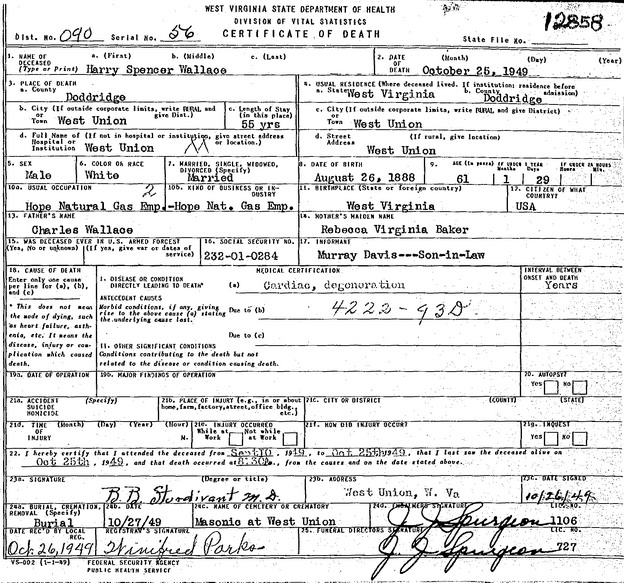 WEST VIRGINIA STATE DEPARTMENT OF HEALTH
DIVISION OF VITAL STATISTICS
CERTIFICATE OF DEATH
12858
Dist. No. 090 Serial No. 56 State File No.
1. NAME OF DECEASED (Type or Print) a. (First) b. (Middle) c. (Last)
Harry Spencer Wallace
2. DATE OF DEATH (Month) (Day) (Year)
October 25, 1949
3. PLACE OF DEATH
a. County
Doddridge
4. USUAL RESIDENCE (Where deceased lived. If institution: residence before admission)
a. State West Virginia b. County Doddridge
b. City (If outside corporate limits, write RURAL and give Dist.)
or Town West Union
c. Length of Stay (in this place)
55 yrs
c. City (If outside corporate limits, write RURAL and give District)
or Town West Union
d. Full Name of (If not in hospital or institution, give street address or location)
Hospital or Institution West Union
d. Street Address (If rural, give location)
West Union
5. SEX
Male
6. COLOR OR RACE
White
7. MARRIED, SINGLE, WIDOWED, DIVORCED (Specify)
Married
8. DATE OF BIRTH
August 26, 1888
9. AGE (In years) IF UNDER 1 YEAR Months Days IF UNDER 24 HOURS Hours Min.
61 1 29
10a. USUAL OCCUPATION 2
Hope Natural Gas Emp.
10b. KIND OF BUSINESS OR INDUSTRY
-Hope Nat. Gas Emp.
11. BIRTHPLACE (State or foreign country)
West Virginia
12. CITIZEN OF WHAT COUNTRY?
USA
13. FATHER'S NAME
Charles Wallace
14. MOTHER'S MAIDEN NAME
Rebecca Virginia Baker
15. WAS DECEASED EVER IN U.S. ARMED FORCES?
(Yes, No or unknown) (If yes, give war or dates of service)
16. SOCIAL SECURITY NO.
232-01-0284
17. INFORMANT
Murray Davis---Son-in-Law
18. CAUSE OF DEATH
Enter only one cause per line for (a), (b), and (c)
* This does not mean the mode of dying, such as heart failure, asthenia, etc. It means the disease, injury or complication which caused death.
MEDICAL CERTIFICATION
I. DISEASE OR CONDITION DIRECTLY LEADING TO DEATH* (a) Cardiac, degeneration
INTERVAL BETWEEN ONSET AND DEATH
Years
ANTECEDENT CAUSES
Morbid conditions, if any, giving rise to the above cause (a) stating the underlying cause last.
Due to (b) 4222-93D
Due to (c)
II. OTHER SIGNIFICANT CONDITIONS
Conditions contributing to the death but not related to the disease or condition causing death.
19a. DATE OF OPERATION
19b. MAJOR FINDINGS OF OPERATION
20. AUTOPSY?
Yes No
21a. ACCIDENT SUICIDE HOMICIDE (Specify)
21b. PLACE OF INJURY (e.g., in or about home, farm, factory, street, office bldg. etc.)
21c. CITY OR DISTRICT (COUNTY) (STATE)
21d. TIME OF INJURY (Month) (Day) (Year) (Hour) M.
21e. INJURY OCCURRED
While at Work Not while at Work
21f. HOW DID INJURY OCCUR?
21g. INQUEST
Yes No
22. I hereby certify that I attended the deceased from Sept 10, 1949, to Oct 25th 1949, that I last saw the deceased alive on
Oct 25th, 1949, and that death occurred at 8:30 m., from the causes and on the date stated above.
23a. SIGNATURE (Degree or title)
B.B. Sturdivant M.D.
23b. ADDRESS
West Union, W. Va
23c. DATE SIGNED
10/26/49
24a. BURIAL, CREMATION, REMOVAL (Specify)
Burial
24b. DATE
10/27/49
24c. NAME OF CEMETERY OR CREMATORY
Masonic at West Union
24d. EMBALMERS SIGNATURE LIC. NO.
J J Spurgeon 1106
DATE REC'D BY LOCAL REG.
Oct. 26, 1949
REGISTRAR'S SIGNATURE
Winifred Parks
25. FUNERAL DIRECTORS SIGNATURE LIC. NO.
J J Spurgeon 727
VS-002 (1-1-49) FEDERAL SECURITY AGENCY
PUBLIC HEALTH SERVICE